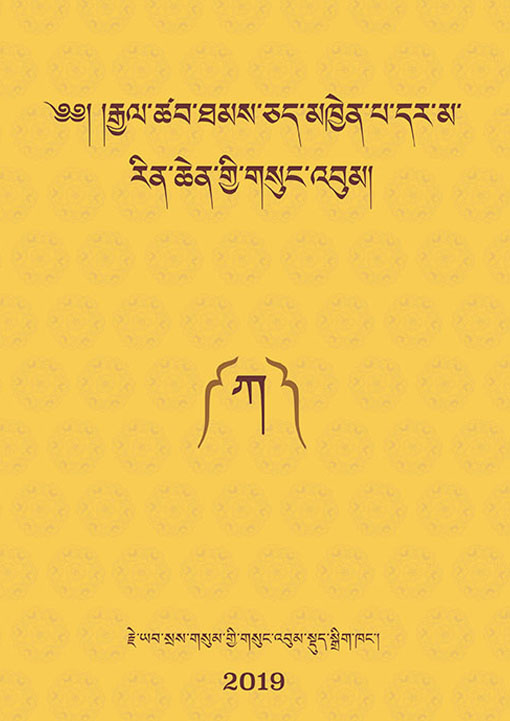 ༄༅། །རྒྱལ་ཚབ་ཐམས་ཅད་མཁྱེན་པ་དར་མ་
རིན་ཆེན་གྱི་གསུང་འབུམ།
ཀ
རྗེ་ཡབ་སྲས་གསུམ་གྱི་གསུང་འབུམ་སྡུད་སྒྲིག་ཁང་།
2019